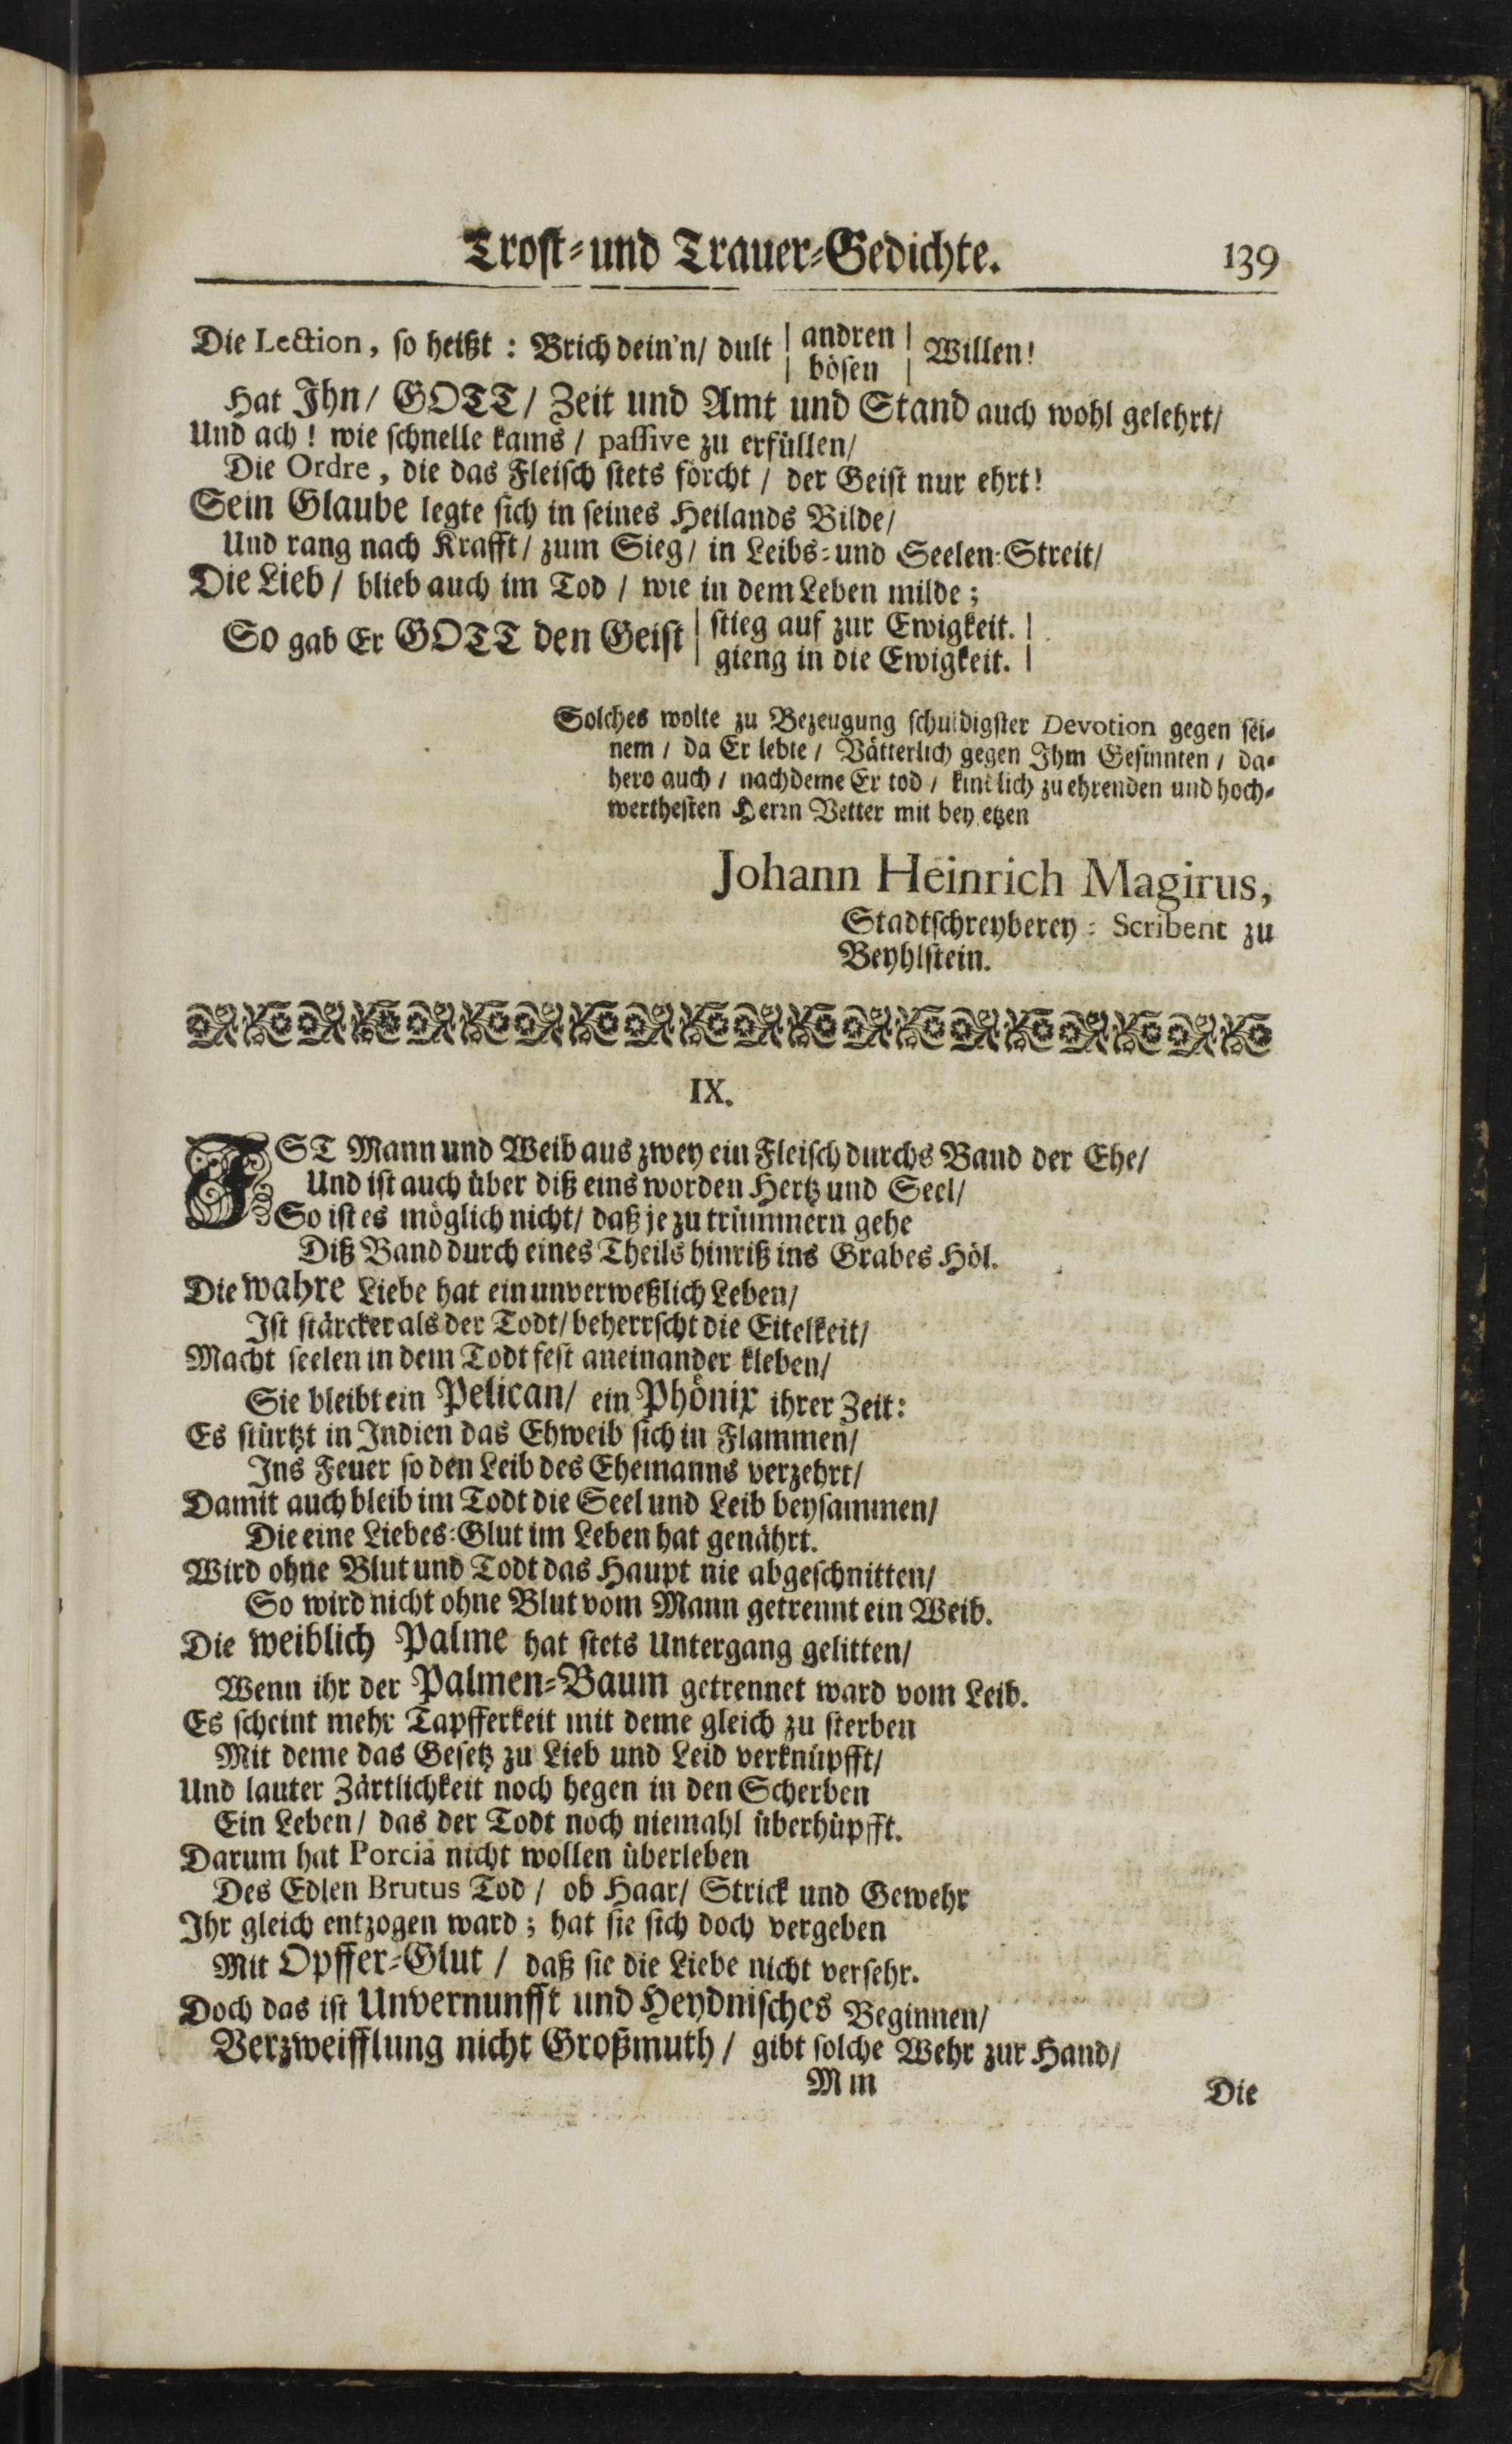 Trost-und Trauer-Gedichte. 139
Die Lection, so heißt: Brich dein'n/ dult | andren | Willen!
| bösen |
Hat Ihn/ GOTT/ Zeit und Amt und Stand auch wohl gelehrt/
Und ach! wie schnelle kams / passive zu erfüllen/
Die Ordre, die das Fleisch stets förcht / der Geist nur ehrt!
Sein Glaube legte sich in seines Heilands Bilde/
Und rang nach Krafft/ zum Sieg/ in Leibs-und Seelen-Streit/
Die Lieb / blieb auch im Tod / wie in dem Leben milde;
So gab Er GOTT den Geist | stieg auf zur Ewigkeit. |
| gieng in die Ewigkeit. |
Solches wolte zu Bezeugung schuldigster Devotion gegen sei-
nem / da Er lebte / Vätterlich gegen Ihm Gesinnten / da-
hero auch / nachdeme Er tod / kindlich zu ehrenden und hoch-
werthesten Herrn Vetter mit bey etzen
Johann Heinrich Magirus,
Stadtschreyberey-Scribent zu
Beyhlstein.
IX.
IST Mann und Weib aus zwey ein Fleisch durchs Band der Ehe/
Und ist auch über diß eins worden Hertz und Seel/
So ist es möglich nicht/ daß je zu trümmern gehe
Diß Band durch eines Theils hinriß ins Grabes Höl.
Die wahre Liebe hat ein unverweßlich Leben/
Ist stärcker als der Todt/ beherrscht die Eitelkeit/
Macht seelen in dem Todt fest aneinander kleben/
Sie bleibt ein Pelican/ ein Phönix ihrer Zeit:
Es stürtzt in Indien das Ehweib sich in Flammen/
Ins Feuer so den Leib des Ehemanns verzehrt/
Damit auch bleib im Todt die Seel und Leib beysammen/
Die eine Liebes-Glut im Leben hat genährt.
Wird ohne Blut und Todt das Haupt nie abgeschnitten/
So wird nicht ohne Blut vom Mann getrennt ein Weib.
Die weiblich Palme hat stets Untergang gelitten/
Wenn ihr der Palmen-Baum getrennet ward vom Leib.
Es scheint mehr Tapfferkeit mit deme gleich zu sterben
Mit deme das Gesetz zu Lieb und Leid verknüpfft/
Und lauter Zärtlichkeit noch hegen in den Scherben
Ein Leben/ das der Todt noch niemahl überhüpfft.
Darum hat Porcia nicht wollen überleben
Des Edlen Brutus Tod / ob Haar/ Strick und Gewehr
Ihr gleich entzogen ward; hat sie sich doch vergeben
Mit Opffer-Glut / daß sie die Liebe nicht versehr.
Doch das ist Unvernunfft und Heydnisches Beginnen/
Verzweifflung nicht Großmuth / gibt solche Wehr zur Hand/
Mm
Die